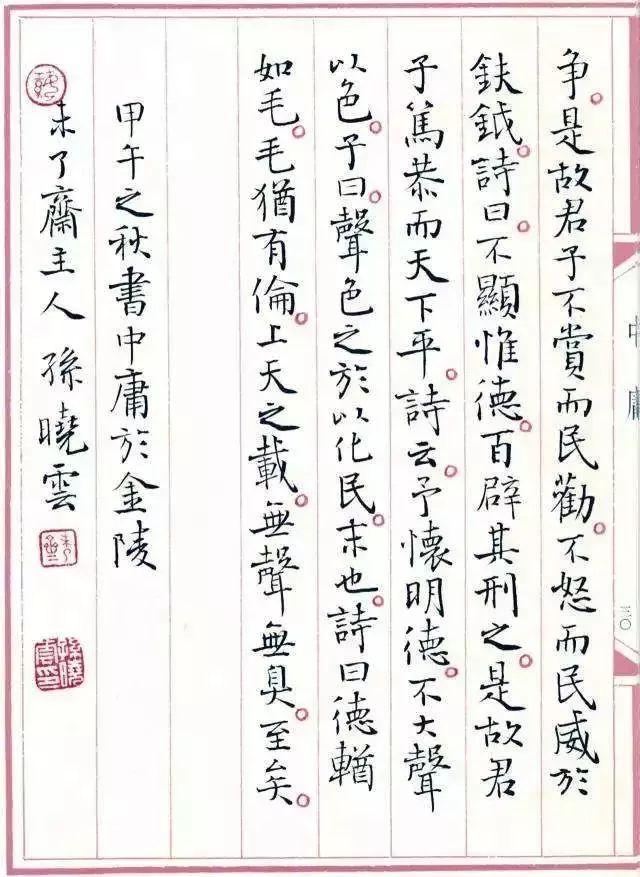 中庸
三〇
争。是故君子不賞而民勸。不怒而民威於
鈇鉞。詩曰。不顯惟德。百辟其刑之。是故君
子篤恭而天下平。詩云。予懷明德。不大聲
以色。子曰。聲色之於以化民。末也。詩曰德輶
如毛。毛猶有倫。上天之載。無聲無臭。至矣。
甲午之秋書中庸於金陵
未了齋主人 孫曉雲